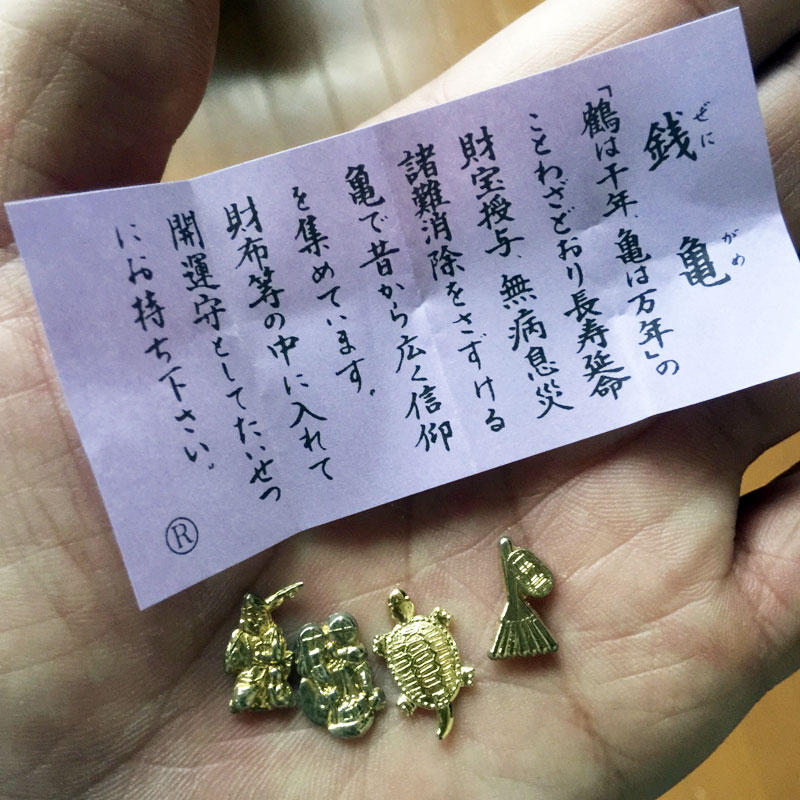 銭亀
ぜにがめ
「鶴は千年、亀は万年」の
ことわざどおり長寿延命
財宝授与、無病息災
諸難消除をさずける
亀で昔から広く信仰
を集めています。
財布等の中に入れて
開運守としてたいせつ
にお持ち下さい。
Ⓡ